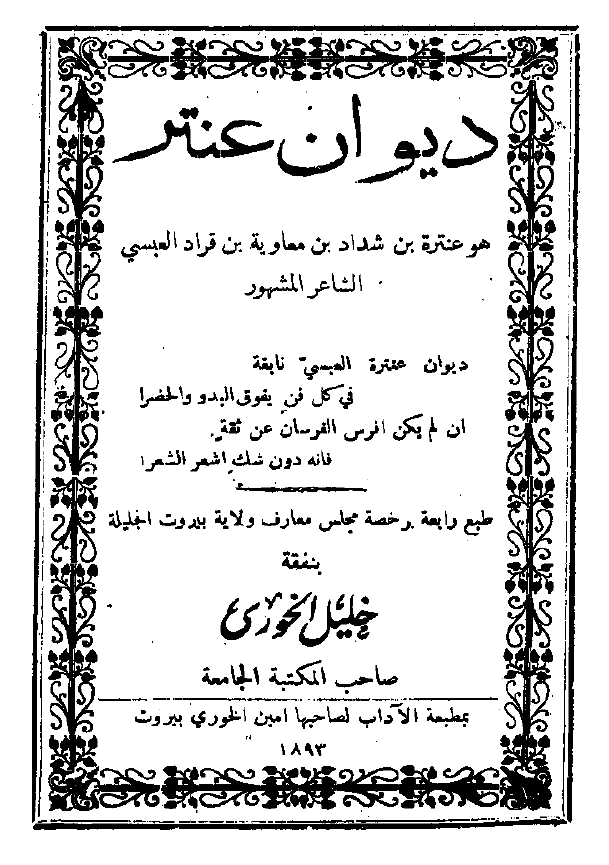 ديوان عنتر
هو عنترة بن شداد بن معاوية بن قراد العبسي
الشاعر المشهور
ديوان عنترة العبسيّ نابغة
في كل فنٍ يفوق البدو والحضرا
ان لم يكن افرس الفرسان عن ثقةٍ
فانه دون شكٍ اشعر الشعرا
طبع رابعة برخصة مجلس معارف ولاية بيروت الجليلة
بنفقة
خليل الخوري
صاحب المكتبة الجامعة
بمطبعة الآداب لصاحبها امين الخوري بيروت
١٨٩٣